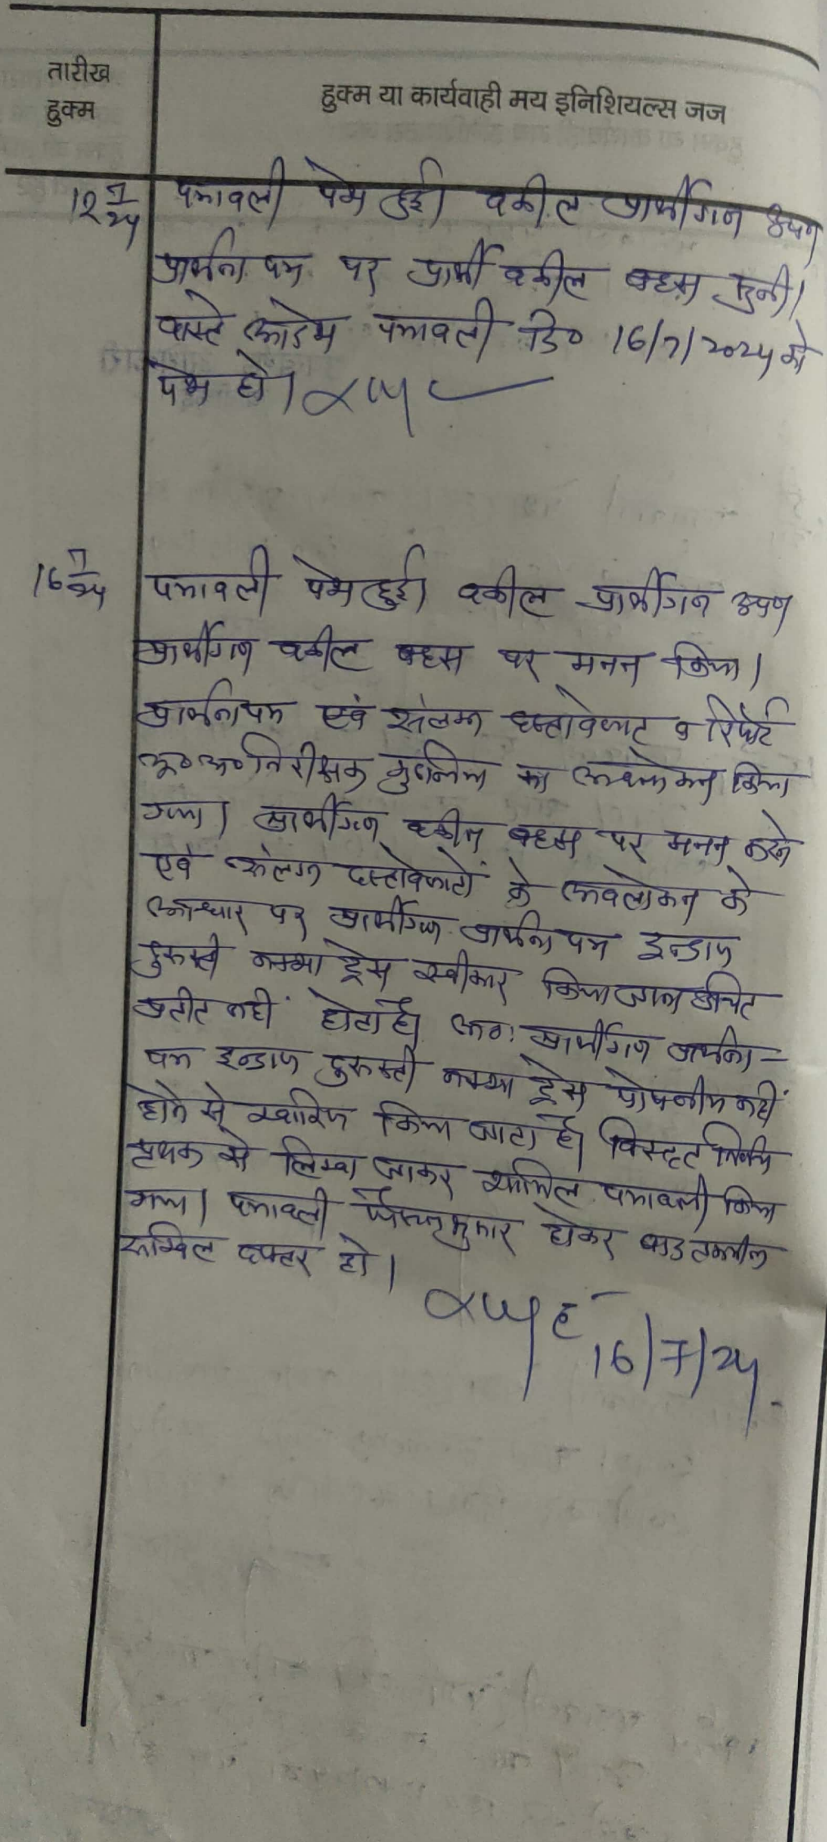 तारीख
हुक्म
हुक्म या कार्यवाही मय इनिशियल्स जज
12/7/24 पत्रावली पेश हुई। वकील प्रार्थीगण उप०
प्रार्थना पत्र पर प्रार्थी वकील बहस सुनी।
वास्ते आदेश पत्रावली दि० 16/7/2024 को
पेश हो।
16/7/24 पत्रावली पेश हुई। वकील प्रार्थीगण उप०
प्रार्थीगण वकील बहस पर मनन किया।
प्रार्थनापत्र एवं संलग्न दस्तावेजात व रिपोर्ट
भू०अ०निरीक्षक का अवलोकन किया
गया। प्रार्थीगण वकील बहस पर मनन करने
एवं संलग्न दस्तावेजातों के अवलोकन के
आधार पर प्रार्थीगण प्रार्थना पत्र इन्द्राज
दुरुस्ती नक्शा ट्रेस स्वीकार किया जाना उचित
प्रतीत नहीं होता है। अतः प्रार्थीगण प्रार्थना-
पत्र इन्द्राज दुरुस्ती नक्शा ट्रेस पोषनीय नहीं
होने से खारिज किया जाता है। विस्तृत निर्णय
पृथक से लिखा जाकर शामिल पत्रावली किया
गया। पत्रावली फैसलशुमार होकर बाद तकमील
दाखिल दफ्तर हो।
16/7/24